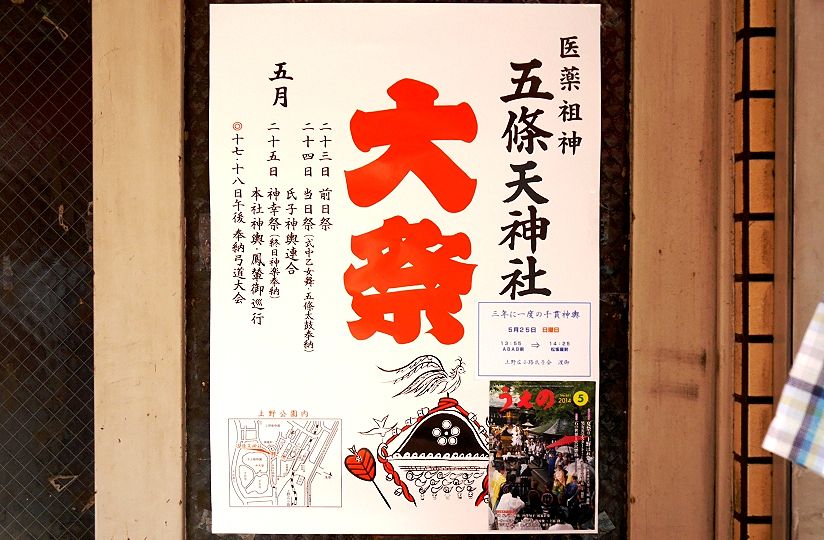 医薬祖神
五條天神社
大祭
五月
二十三日 前日祭
二十四日 当日祭(式中乙女舞・五條太鼓奉納)
氏子神輿連合
二十五日 神幸祭(終日神楽奉納)
本社神輿・鳳輦御巡行
◎十七・十八日午後 奉納弓道大会
三年に一度の千貫神輿
5月25日 日曜日
13:55 ⇒ 14:25
ABAB前 松坂屋前
上野広小路氏子会 渡御
うえの
2014
5
上野公園内